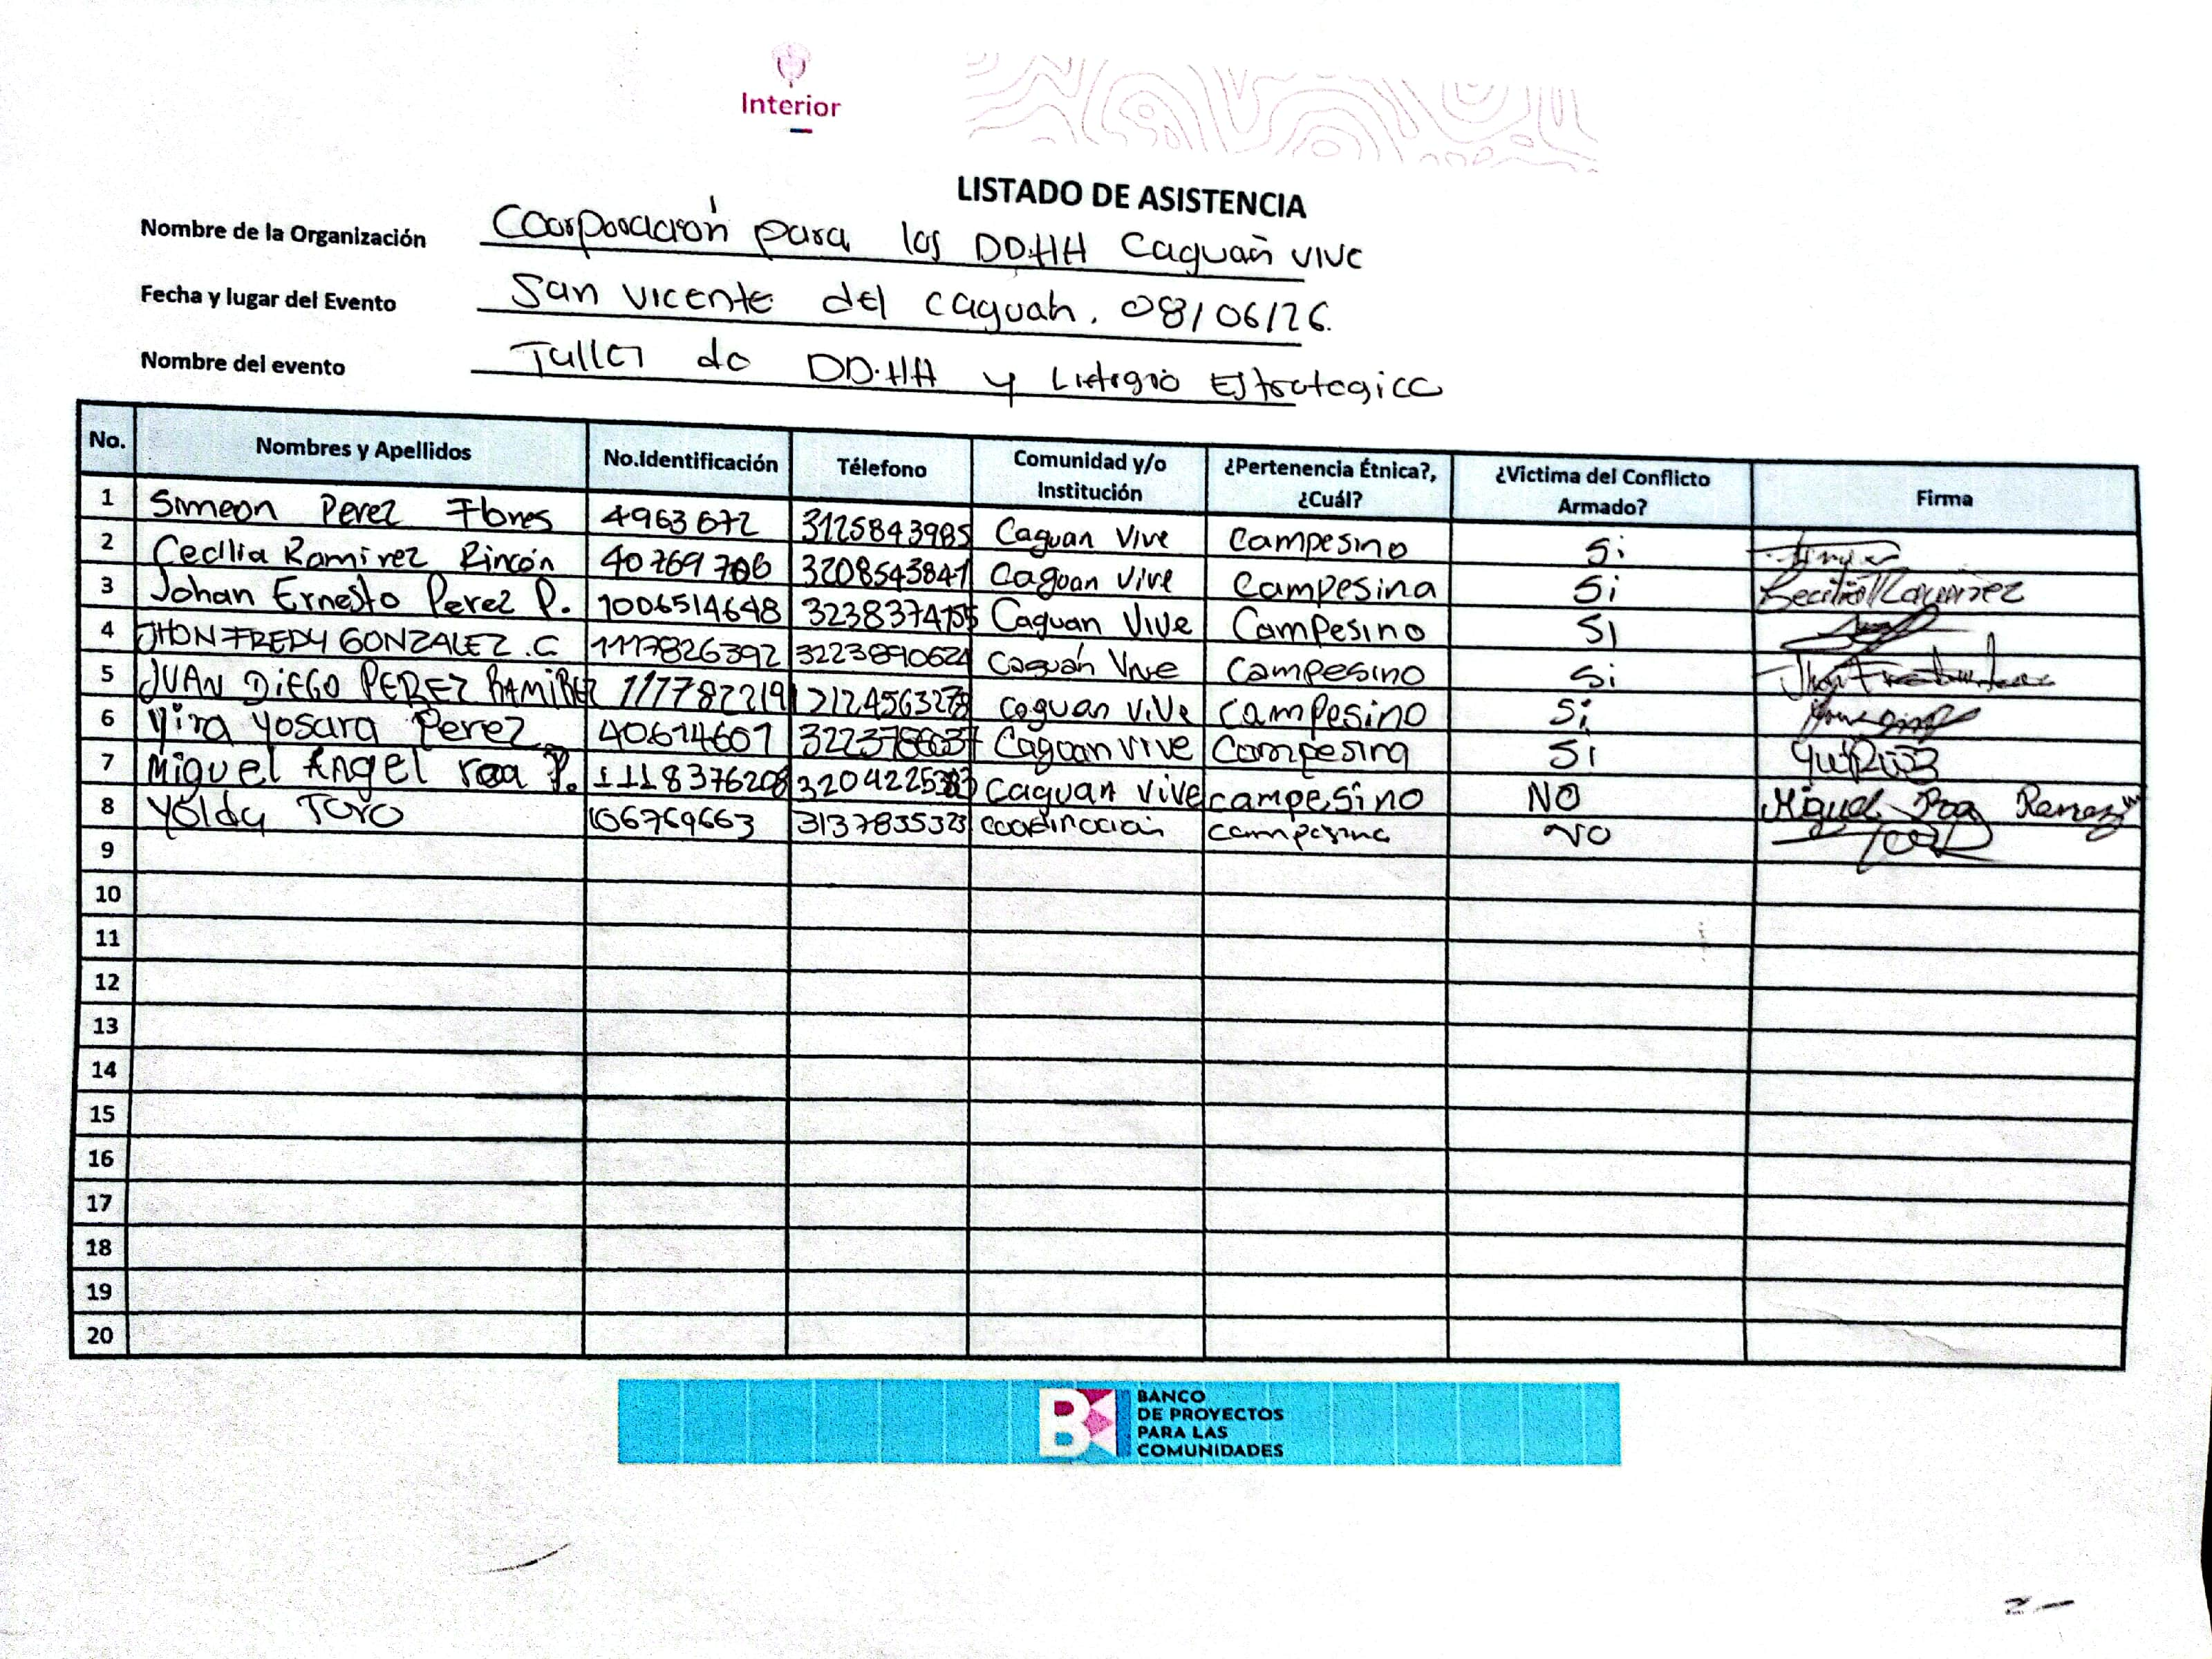 Interior
LISTADO DE ASISTENCIA
Nombre de la Organización Coorporación para los DD.HH Caguán vive
Fecha y lugar del Evento San Vicente del Caguan. 08/06/26.
Nombre del evento Taller de DD.HH y Litigio Estrategico
No. Nombres y Apellidos No.Identificación Télefono Comunidad y/o Institución ¿Pertenencia Étnica?, ¿Cuál? ¿Victima del Conflicto Armado? Firma
1 Simeon Perez Flores 4963672 3125843985 Caguan Vive Campesino Si
2 Cecilia Ramirez Rincón 40769706 3208543841 Caguan Vive Campesina Si Cecilia Ramirez
3 Johan Ernesto Perez P. 1006514648 Caguan Vive Campesino SI
4 JHON FREDY GONZALEZ .C 1117826392 3223890624 Caguán Vive Campesino Si
5 JUAN DIEGO PEREZ RAMIREZ Caguan ViVe Campesino Si
6 Yosara Perez 40614601 Caguan vive Campesina SI
7 Miguel Angel roa P. 1118376208 Caguan vive campesino NO Miguel Roa
8 Yolda TORO 3137835323 coordinacion campesina NO
9
10
11
12
13
14
15
16
17
18
19
20
BANCO
DE PROYECTOS
PARA LAS
COMUNIDADES